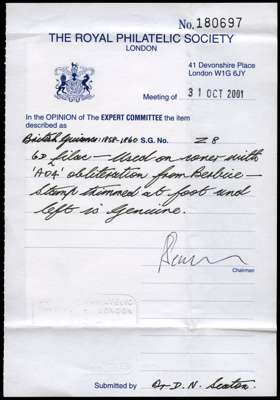 No. 180697
THE ROYAL PHILATELIC SOCIETY
LONDON
41 Devonshire Place
London W1G 6JY
Meeting of 31 OCT 2001
In the OPINION of The EXPERT COMMITTEE the item
described as
British Guiana: 1858-1860 S.G. No. Z8
6D lilac - Used on cover with
'A04' obliteration from Berbice -
Stamp trimmed at foot and
left is Genuine.
Chairman
PHILATELIC
LONDON
Submitted by Dr D. N. Seaton.